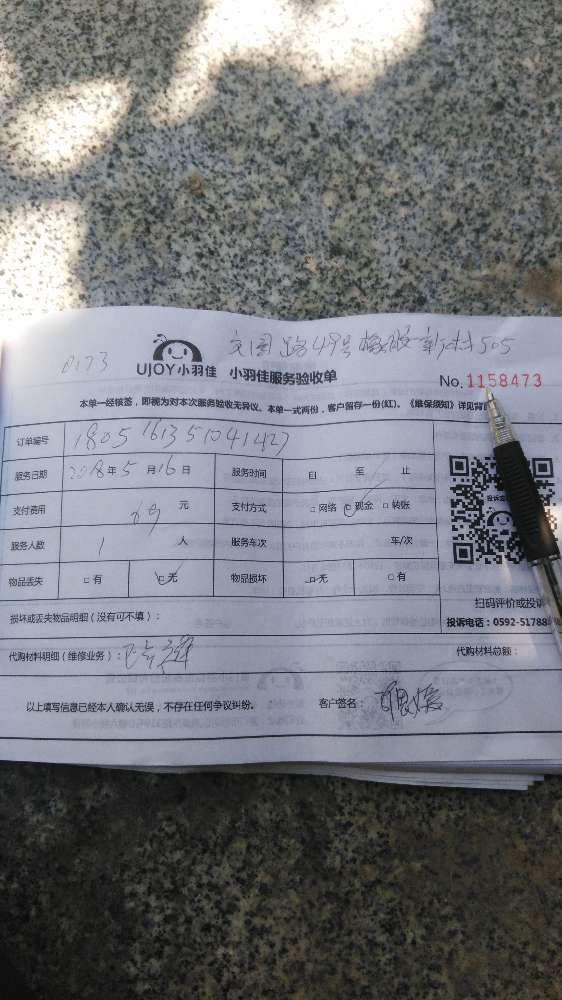 路49号 505
0173
UJOY小羽佳 小羽佳服务验收单
No.1158473
本单一经核签，即视为对本次服务验收无异议。本单一式两份，客户留存一份(红)。《维保须知》详见背
订单编号
服务日期 2018年5月16日 服务时间 自 至 止
支付费用 元 支付方式 □网络 □现金 □转账
服务人数 1 人 服务车次 车/次
物品丢失 □有 □无 物品损坏 □无 □有
扫码评价或投诉
损坏或丢失物品明细（没有可不填）：
投诉电话：0592-51788
代购材料明细（维修业务）： 代购材料总额：
以上填写信息已经本人确认无误，不存在任何争议纠纷。 客户签名：